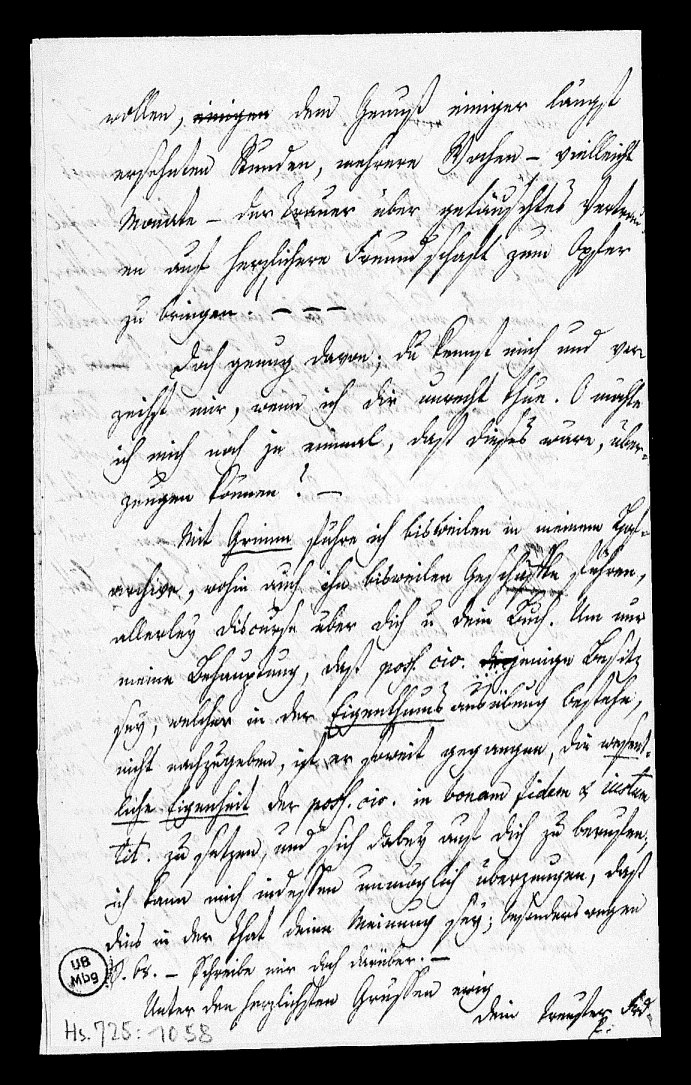 wollen, einigen dem Genuß einiger längst
ersehnten Stunden, mehrere Wochen – vielleicht
Monate – der Trauer über getäuschtes Vertrau-
en auf herzlichere Freundschaft zum Opfer
zu bringen. – – –
Doch genug davon. Du kennst mich und ver-
zeihst mir, wenn ich dir unrecht thue. O möchte
ich mich noch je einmal, daß dieses wäre, über-
zeugen können! –
Mit Grimm führe ich bisweilen in meinem
archive, wohin auch ihn bisweilen Geschäfte führen,
allerley discurse über dich u dein Buch. Um nur
meine Behauptung, daß poss. civ. derjenige Besitz
sey, welcher in der Eigenthumsausübung bestehe,
nicht nachzugeben, ist er soweit gegangen, die wesent-
liche Eigenheit der poss. civ. in bonam fidem & iustum
tit. zu setzen, und sich dabey auf dich zu berufen,
ich kann mich indessen unmöglich überzeugen, daß
dies in der That deine Meinung sey; besonders wegen
S. 68. – Schreibe mir doch darüber. –
Unter den herzlichsten Grüßen ewig
dein treuster Frd.
UB
Mbg
Hs. 725: 1058